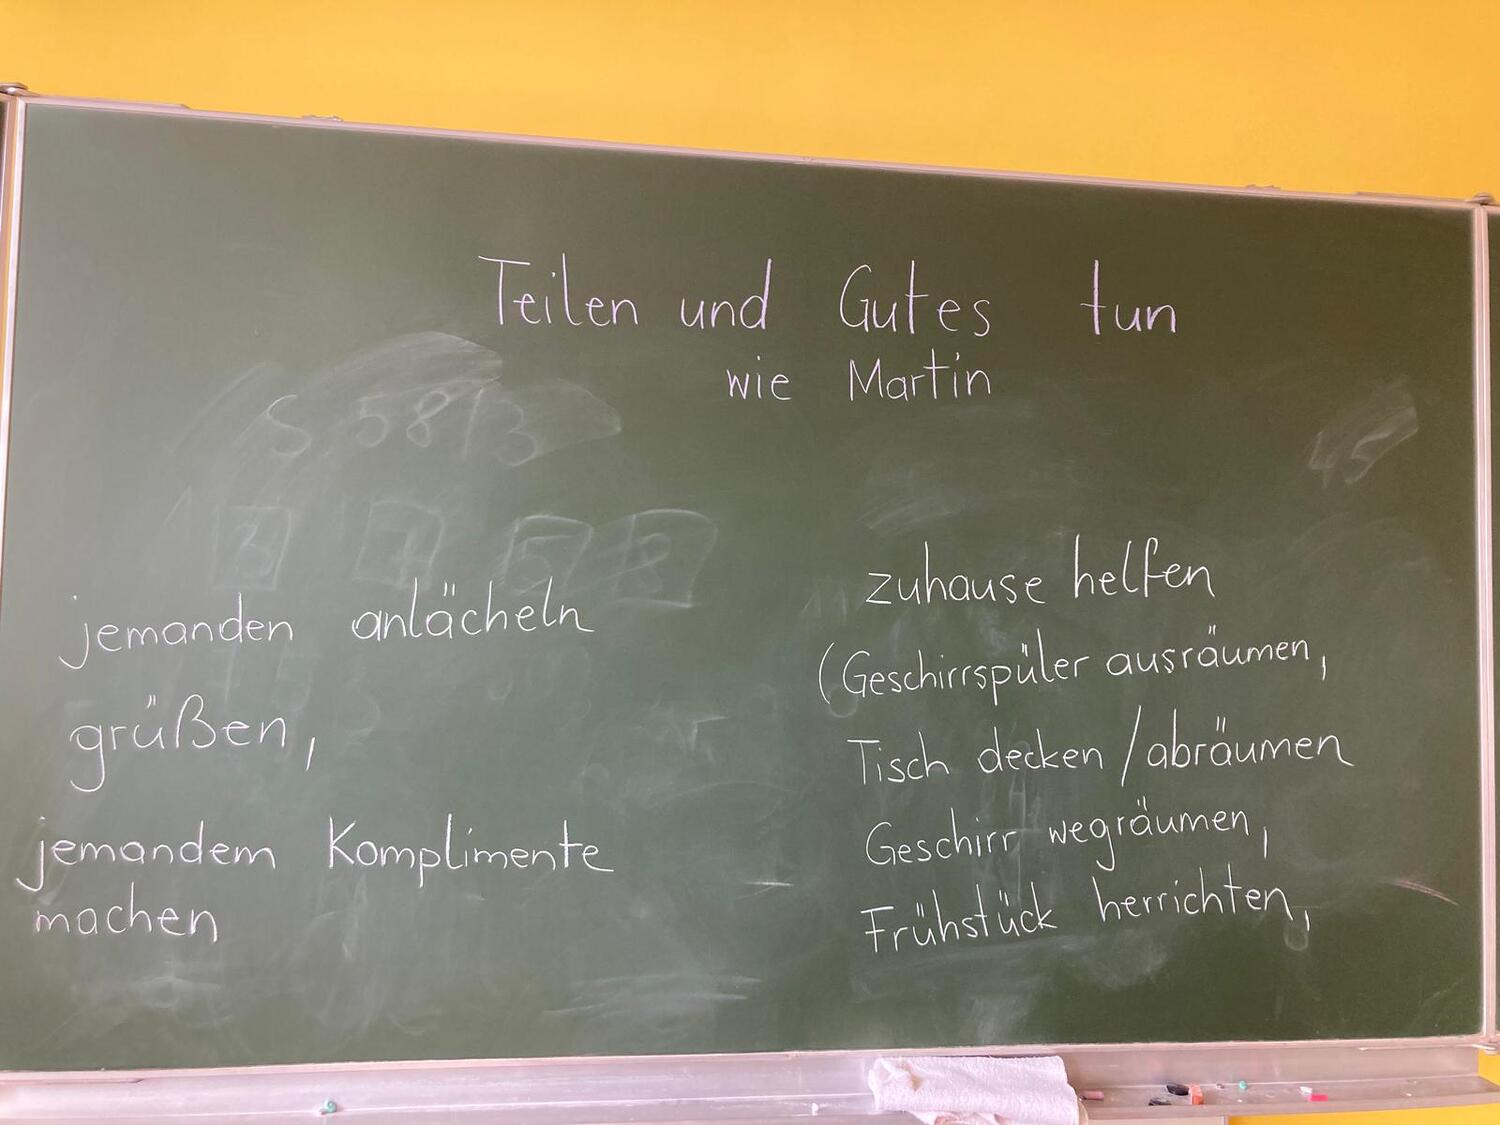 Teilen und Gutes tun
wie Martin
jemanden anlächeln
grüßen,
jemandem Komplimente
machen
zuhause helfen
(Geschirrspüler ausräumen,
Tisch decken / abräumen
Geschirr wegräumen,
Frühstück herrichten,